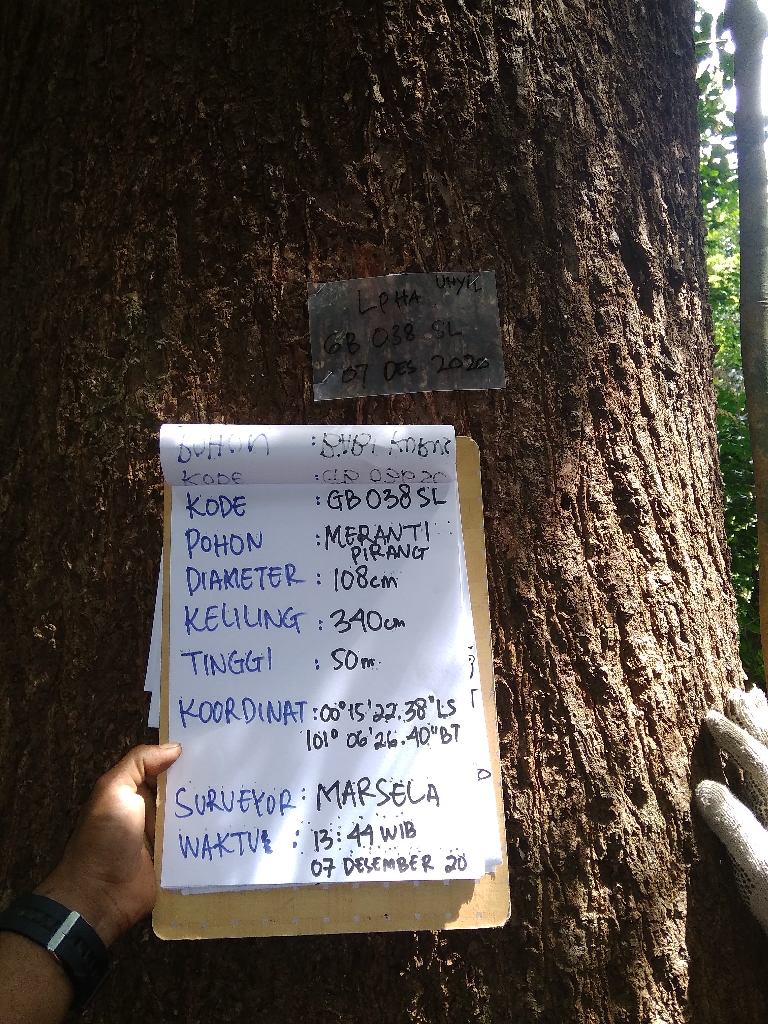 LPHA
GB 038 SL
07 DES 2020
KODE
KODE : GB 038 SL
POHON : MERANTI
PIRANG
DIAMETER : 108cm
KELILING : 340cm
TINGGI : 50m
KOORDINAT : 00° 15' 22.38" LS
101° 06' 26.40" BT
SURVEYOR : MARSELA
WAKTU : 13:44 WIB
07 DESEMBER 20